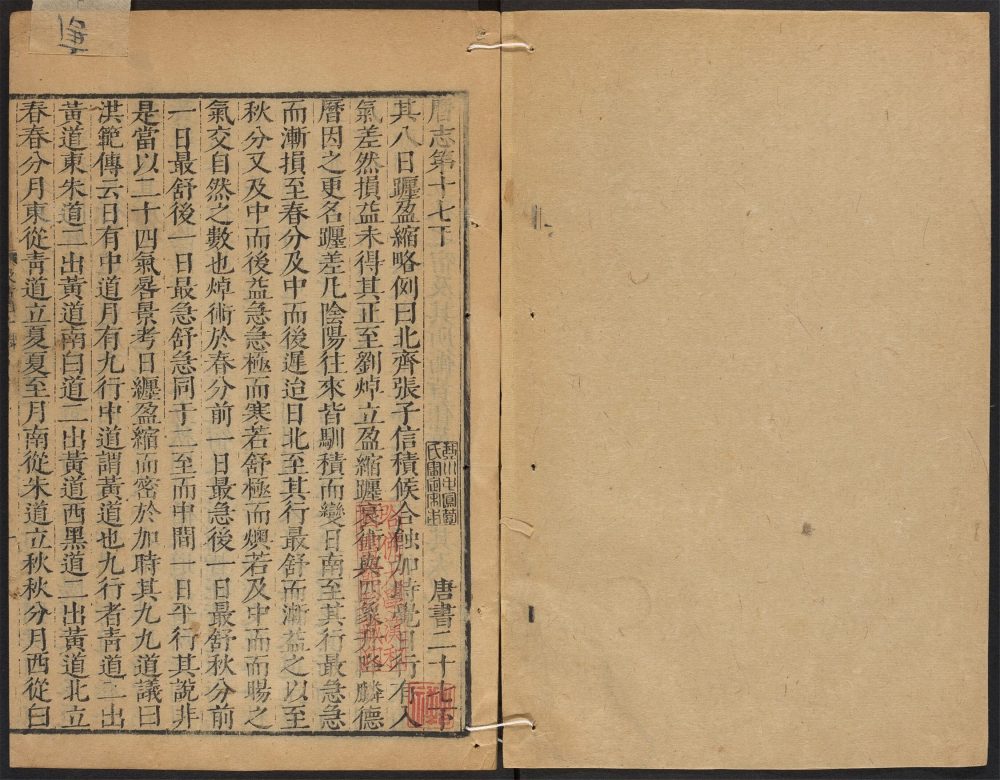 唐志第十七下
唐書二十七下
其八日躔盈縮略例曰北齊張子信積候合蝕加時覺日行有入
氣差然損益未得其正至劉焯立盈縮躔衰術與四象升降麟德
曆因之更名躔差凡陰陽往來皆馴積而變日南至其行最急急
而漸損至春分及中而後遲迨日北至其行最舒而漸益之以至
秋分又及中而後益急急極而寒若舒極而燠若及中而雨暘之
氣交自然之數也焯術於春分前一日最急後一日最舒秋分前
一日最舒後一日最急舒急同于二至而中間一日平行其說非
是當以二十四氣晷景考日躔盈縮而密於加時其九九道議曰
洪範傳云日有中道月有九行中道謂黃道也九行者青道二出
黃道東朱道二出黃道南白道二出黃道西黑道二出黃道北立
春春分月東從青道立夏夏至月南從朱道立秋秋分月西從白